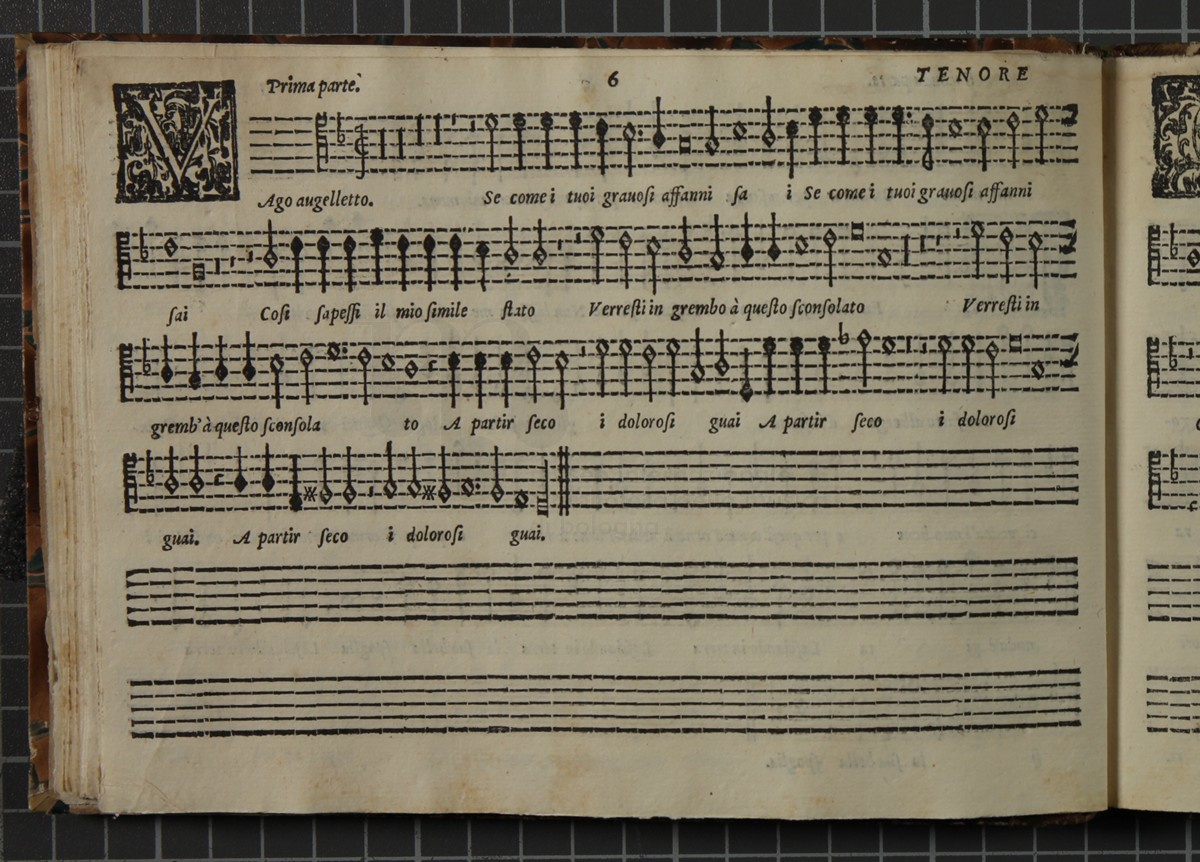 Prima parte. 6 TENORE
VAgo augelletto. Se come i tuoi grauoſi affanni ſa i Se come i tuoi grauoſi affanni
ſai Coſi ſapeſſi il mio ſimile ſtato Verreſti in grembo à queſto ſconſolato Verreſti in
gremb'à queſto ſconſola to A partir ſeco i doloroſi guai A partir ſeco i doloroſi
guai. A partir ſeco i doloroſi guai.